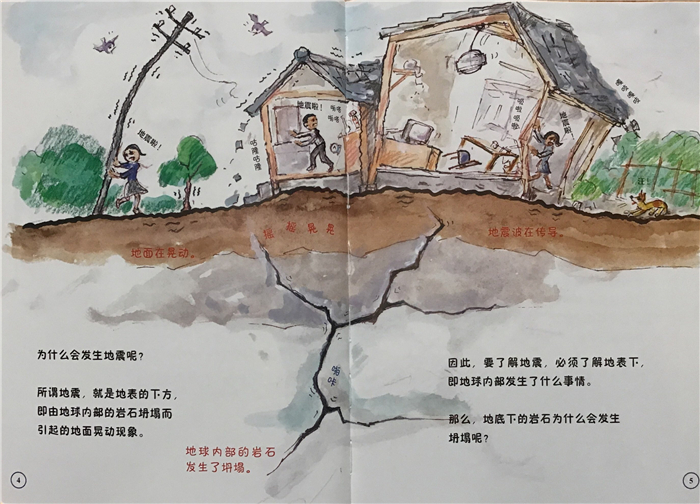 地震啦!
地震啦!
咕隆咕隆
嗡嗡
嗡嗡
地震啦!
汪!
地面在晃动。
摇摇晃晃
地震波在传导。
为什么会发生地震呢?
所谓地震,就是地表的下方,
即由地球内部的岩石坍塌而
引起的地面晃动现象。
地球内部的岩石
发生了坍塌。
因此,要了解地震,必须了解地表下,
即地球内部发生了什么事情。
那么,地底下的岩石为什么会发生
坍塌呢?
4
5